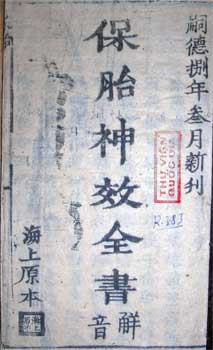 嗣德捌年叁月新刊
保胎神效全書
觧音
海上原本
THƯ VIỆN
QUỐC GIA